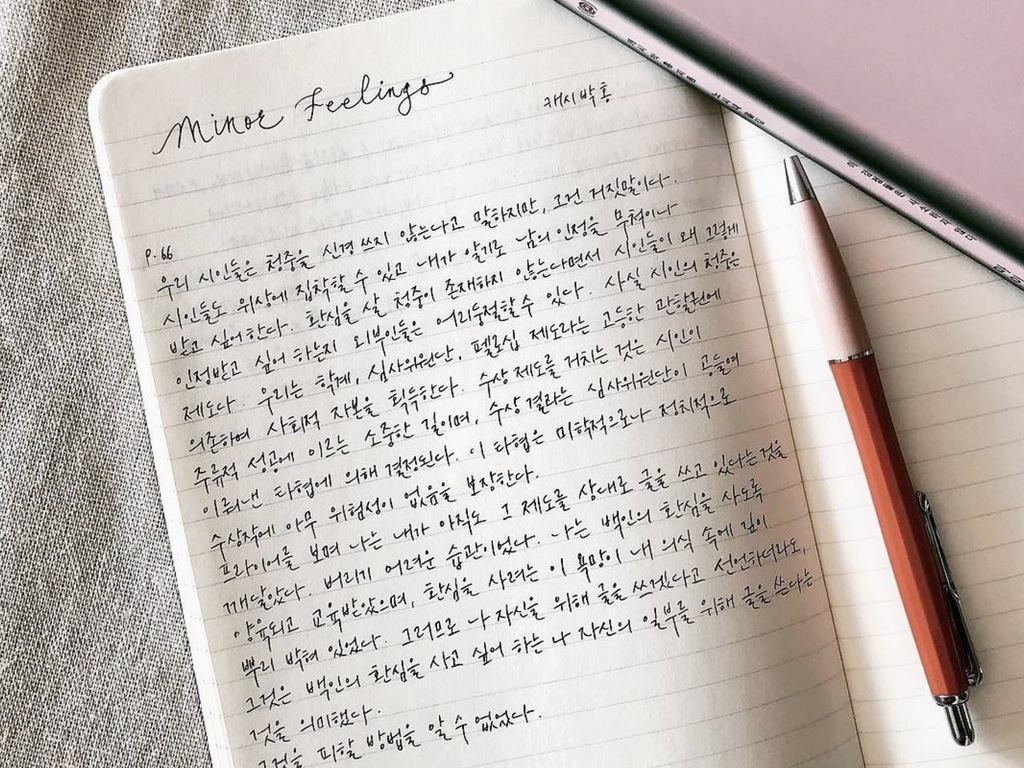 Minor Feelings
캐시 박 홍
P. 66
우리 시인들은 청중을 신경 쓰지 않는다고 말하지만, 그건 거짓말이다.
시인들도 위상에 집착할 수 있고 내가 알기로 남의 인정을 무척이나
받고 싶어한다. 환심을 살 청중이 존재하지 않는다면서 시인들이 왜 그렇게
인정받고 싶어 하는지 외부인들은 어리둥절할 수 있다. 사실 시인의 청중은
제도다. 우리는 학계, 심사위원단, 펠로십 제도라는 고등한 관할권에
의존하여 사회적 자본을 획득한다. 수상 제도를 거치는 것은 시인이
주류적 성공에 이르는 소중한 길이며, 수상 결과는 심사위원단이 공들여
이뤄낸 타협에 의해 결정된다. 이 타협은 미학적으로나 정치적으로
수상작에 아무 위험성이 없음을 보장한다.
프라이어를 보며 나는 내가 아직도 그 제도를 상대로 글을 쓰고 있다는 것을
깨달았다. 버리기 어려운 습관이었다. 나는 백인의 환심을 사도록
양육되고 교육받았으며, 환심을 사려는 이 욕망이 내 의식 속에 깊이
뿌리 박혀 있었다. 그러므로 나 자신을 위해 글을 쓰겠다고 선언하더라도,
그것은 백인의 환심을 사고 싶어 하는 나 자신의 일부를 위해 글을 쓴다는
것을 의미했다.
그것을 피할 방법을 알 수 없었다.